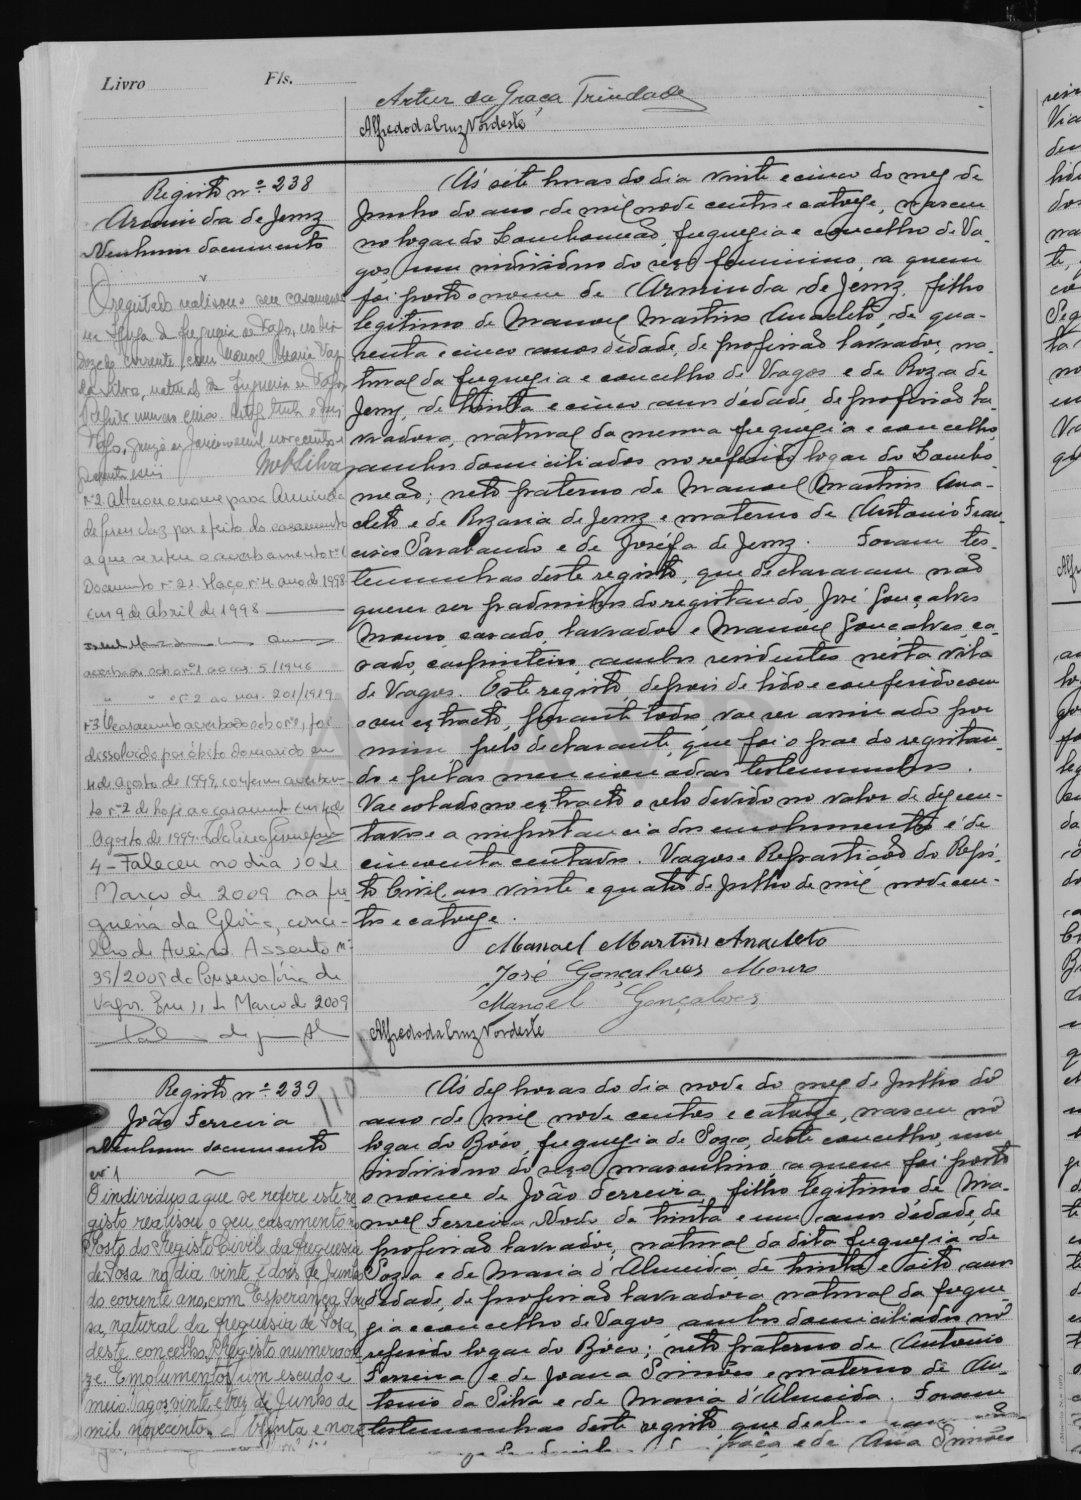 Livro Fls.
Artur da Graça Trindade
Alfredo da Cruz Nordeste
Registo nº 238
Arminda de Jemz
Nenhum documento
O registado realisou seu casamento
na freguesia de Vagos, no dia
doze do corrente, com Manoel Maria Vaz
da Silva, natural da freguesia de Vagos,
Vagos, de Janeiro mil novecentos e
quarenta e seis
nº 2 Alterou o nome para Arminda
de Jesus Vaz por efeito do casamento
a que se refere o averbamento nº 1
Documento nº 21. Maço nº 4 ano de 1998
Em 9 de Abril de 1998
averbado sob o nº 1 ao cas. 5/1946
" " nº 2 ao nas. 201/1919
nº 3 O casamento averbado sob o nº 1, foi
dissolvido por óbito do marido em
4 de Agosto de 1999, conforme averbamen-
to nº 2 de hoje ao casamento. Em de
Agosto de 1999.
4 - Faleceu no dia 10 de
Março de 2009 na fre
guesia da Glória, conce-
lho de Aveiro. Assento nº
39/2009 da Conservatória de
Vagos. Em 11 de Março de 2009
Ás sete horas do dia vinte e cinco do mez de
Junho do ano de mil nove centos e catorze, nasceu
no logar do Lombomeão, freguezia e concelho de Va-
gos um individuo do sexo feminino, a quem
foi posto o nome de Arminda de Jemz, filho
legitimo de Manoel Martins Anacleto, de qua-
renta e cinco anos d'edade, de profissão lavrador, na-
tural da freguezia e concelho de Vagos e de Roza de
Jemz, de trinta e cinco anos d'edade, de profissão la-
vradora, natural da mesma freguezia e concelho,
ambos domiciliados no referido logar do Lombo-
meão; neto paterno de Manoel Martins Ana-
cleto e de Rozaria de Jemz e materno de Antonio Fran-
cisco Sarabando e de Joséfa de Jemz. Foram tes-
temunhas deste registo, que declararam não
querer ser padrinhos do registando, José Gonçalves
Mouro, casado, lavrador e Manoel Gonçalves, ca-
sado, carpinteiro, ambos residentes nesta vila
de Vagos. Este registo, depois de lido e conferido com
o seu extracto, perante todos, vae ser assinado por
mim pelo declarante, que foi o pae do registan-
do e pelas mencionadas testemunhas.
Vae colado no extracto o selo devido no valor de dez cen-
tavos e a importancia dos emolumentos é de
cincoenta centavos. Vagos e Repartição do Regis-
to Civil, aos vinte e quatro de Julho de mil nove cen-
tos e catorze.
Manoel Martins Anacleto
José Gonçalves Mouro
Manoel Gonçalves
Alfredo da Cruz Nordeste
Registo nº 239
João Ferreira
Nenhum documento
nº 1
O individuo a que se refere este re
gisto realisou o seu casamento no
Posto do Registo Civil da freguesia
de Sosa no dia vinte e dois de Junho
do corrente ano, com Esperança
natural da freguesia de Sosa,
deste concelho. Registo numero on
ze. Emolumentos um escudo e
meio. Vagos, vinte e trez de Junho de
mil novecentos e trinta e nove
Ás dez horas do dia nove do mez de Julho do
ano de mil nove centos e catorze, nasceu no
logar do Bôco, freguezia de Soza, deste concelho, um
individuo do sexo masculino, a quem foi posto
o nome de João Ferreira, filho legitimo de Ma-
noel Ferreira Novo, de trinta e um anos d'edade, de
profissão lavrador, natural da dita freguezia de
Soza e de Maria d'Almeida, de trinta e oito anos
d'edade, de profissão lavradora natural da fregue-
zia e concelho de Vagos, ambos domiciliados no
referido logar do Bôco; neto paterno de Antonio
Ferreira e de Joana Simões e materno de An-
tonio da Silva e de Maria d'Almeida. Foram
testemunhas deste registo que
Graça e de Ana Simões